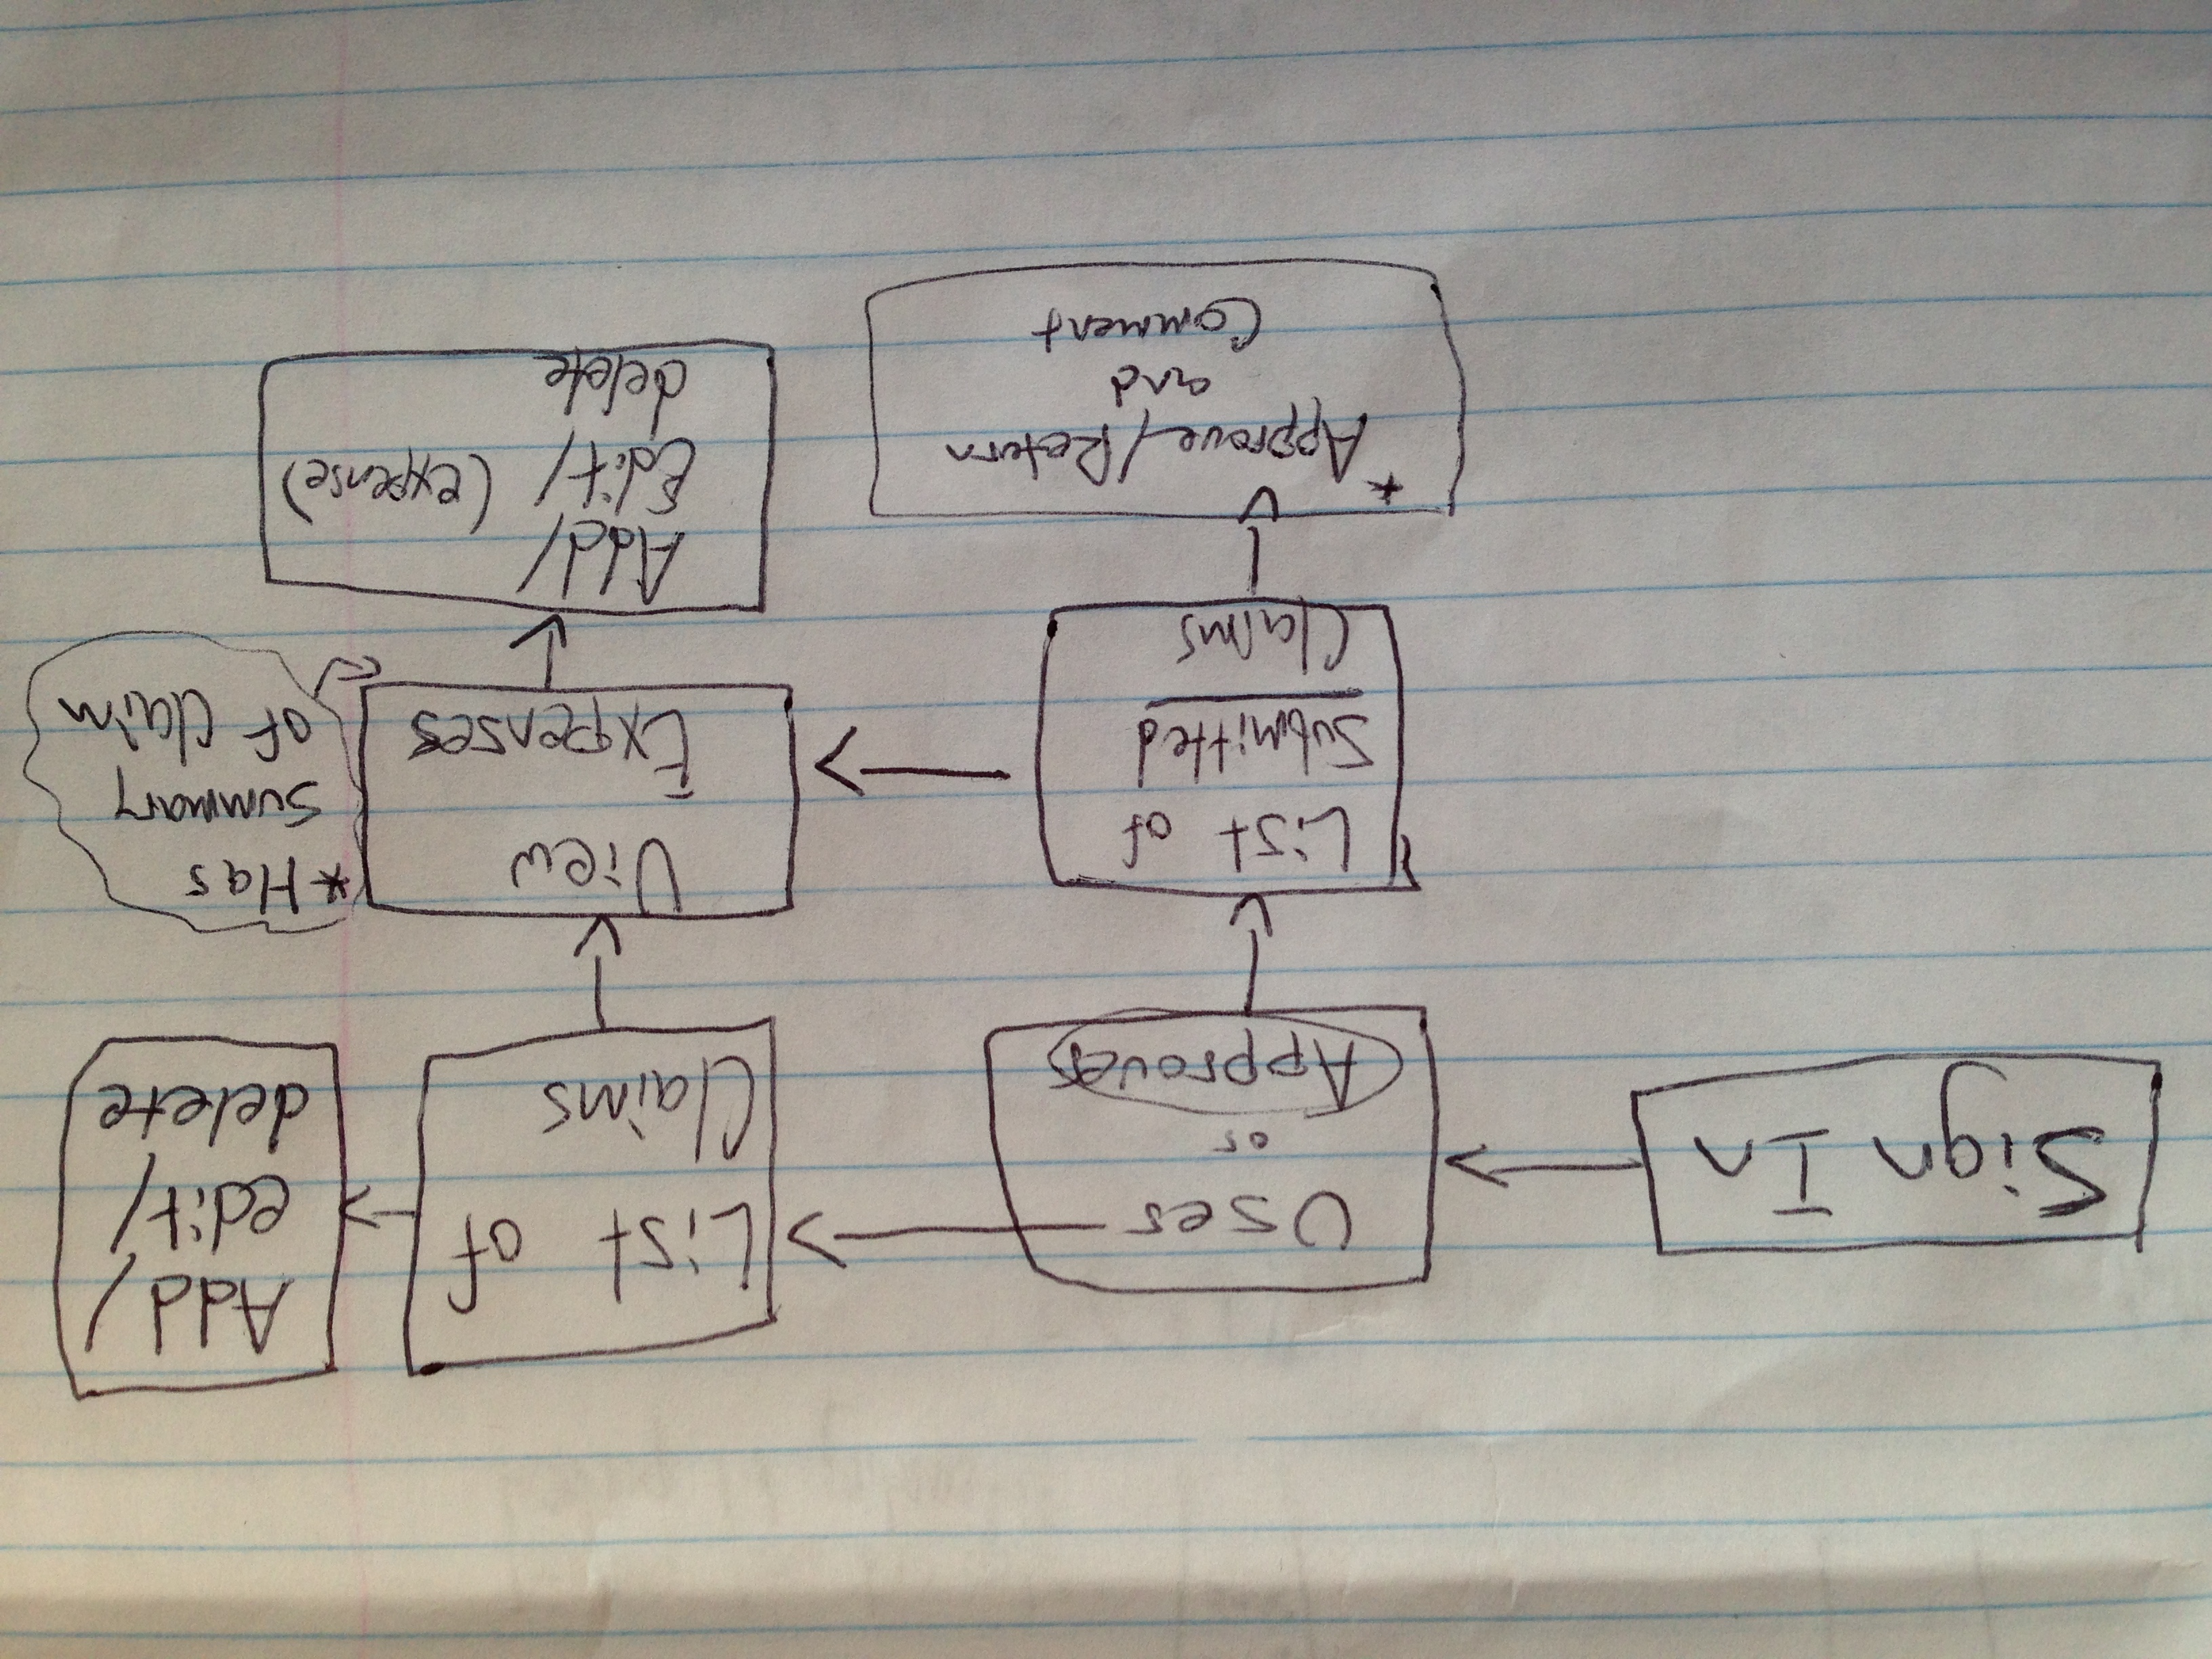 Sign In
User
or
Approver
List of
Claims
Add/
edit/
delete
List of
Submitted
Claims
View
Expenses
*Has
summary
of claim
*
Approve/Return
and
Comment
Add/
Edit/ (expense)
delete